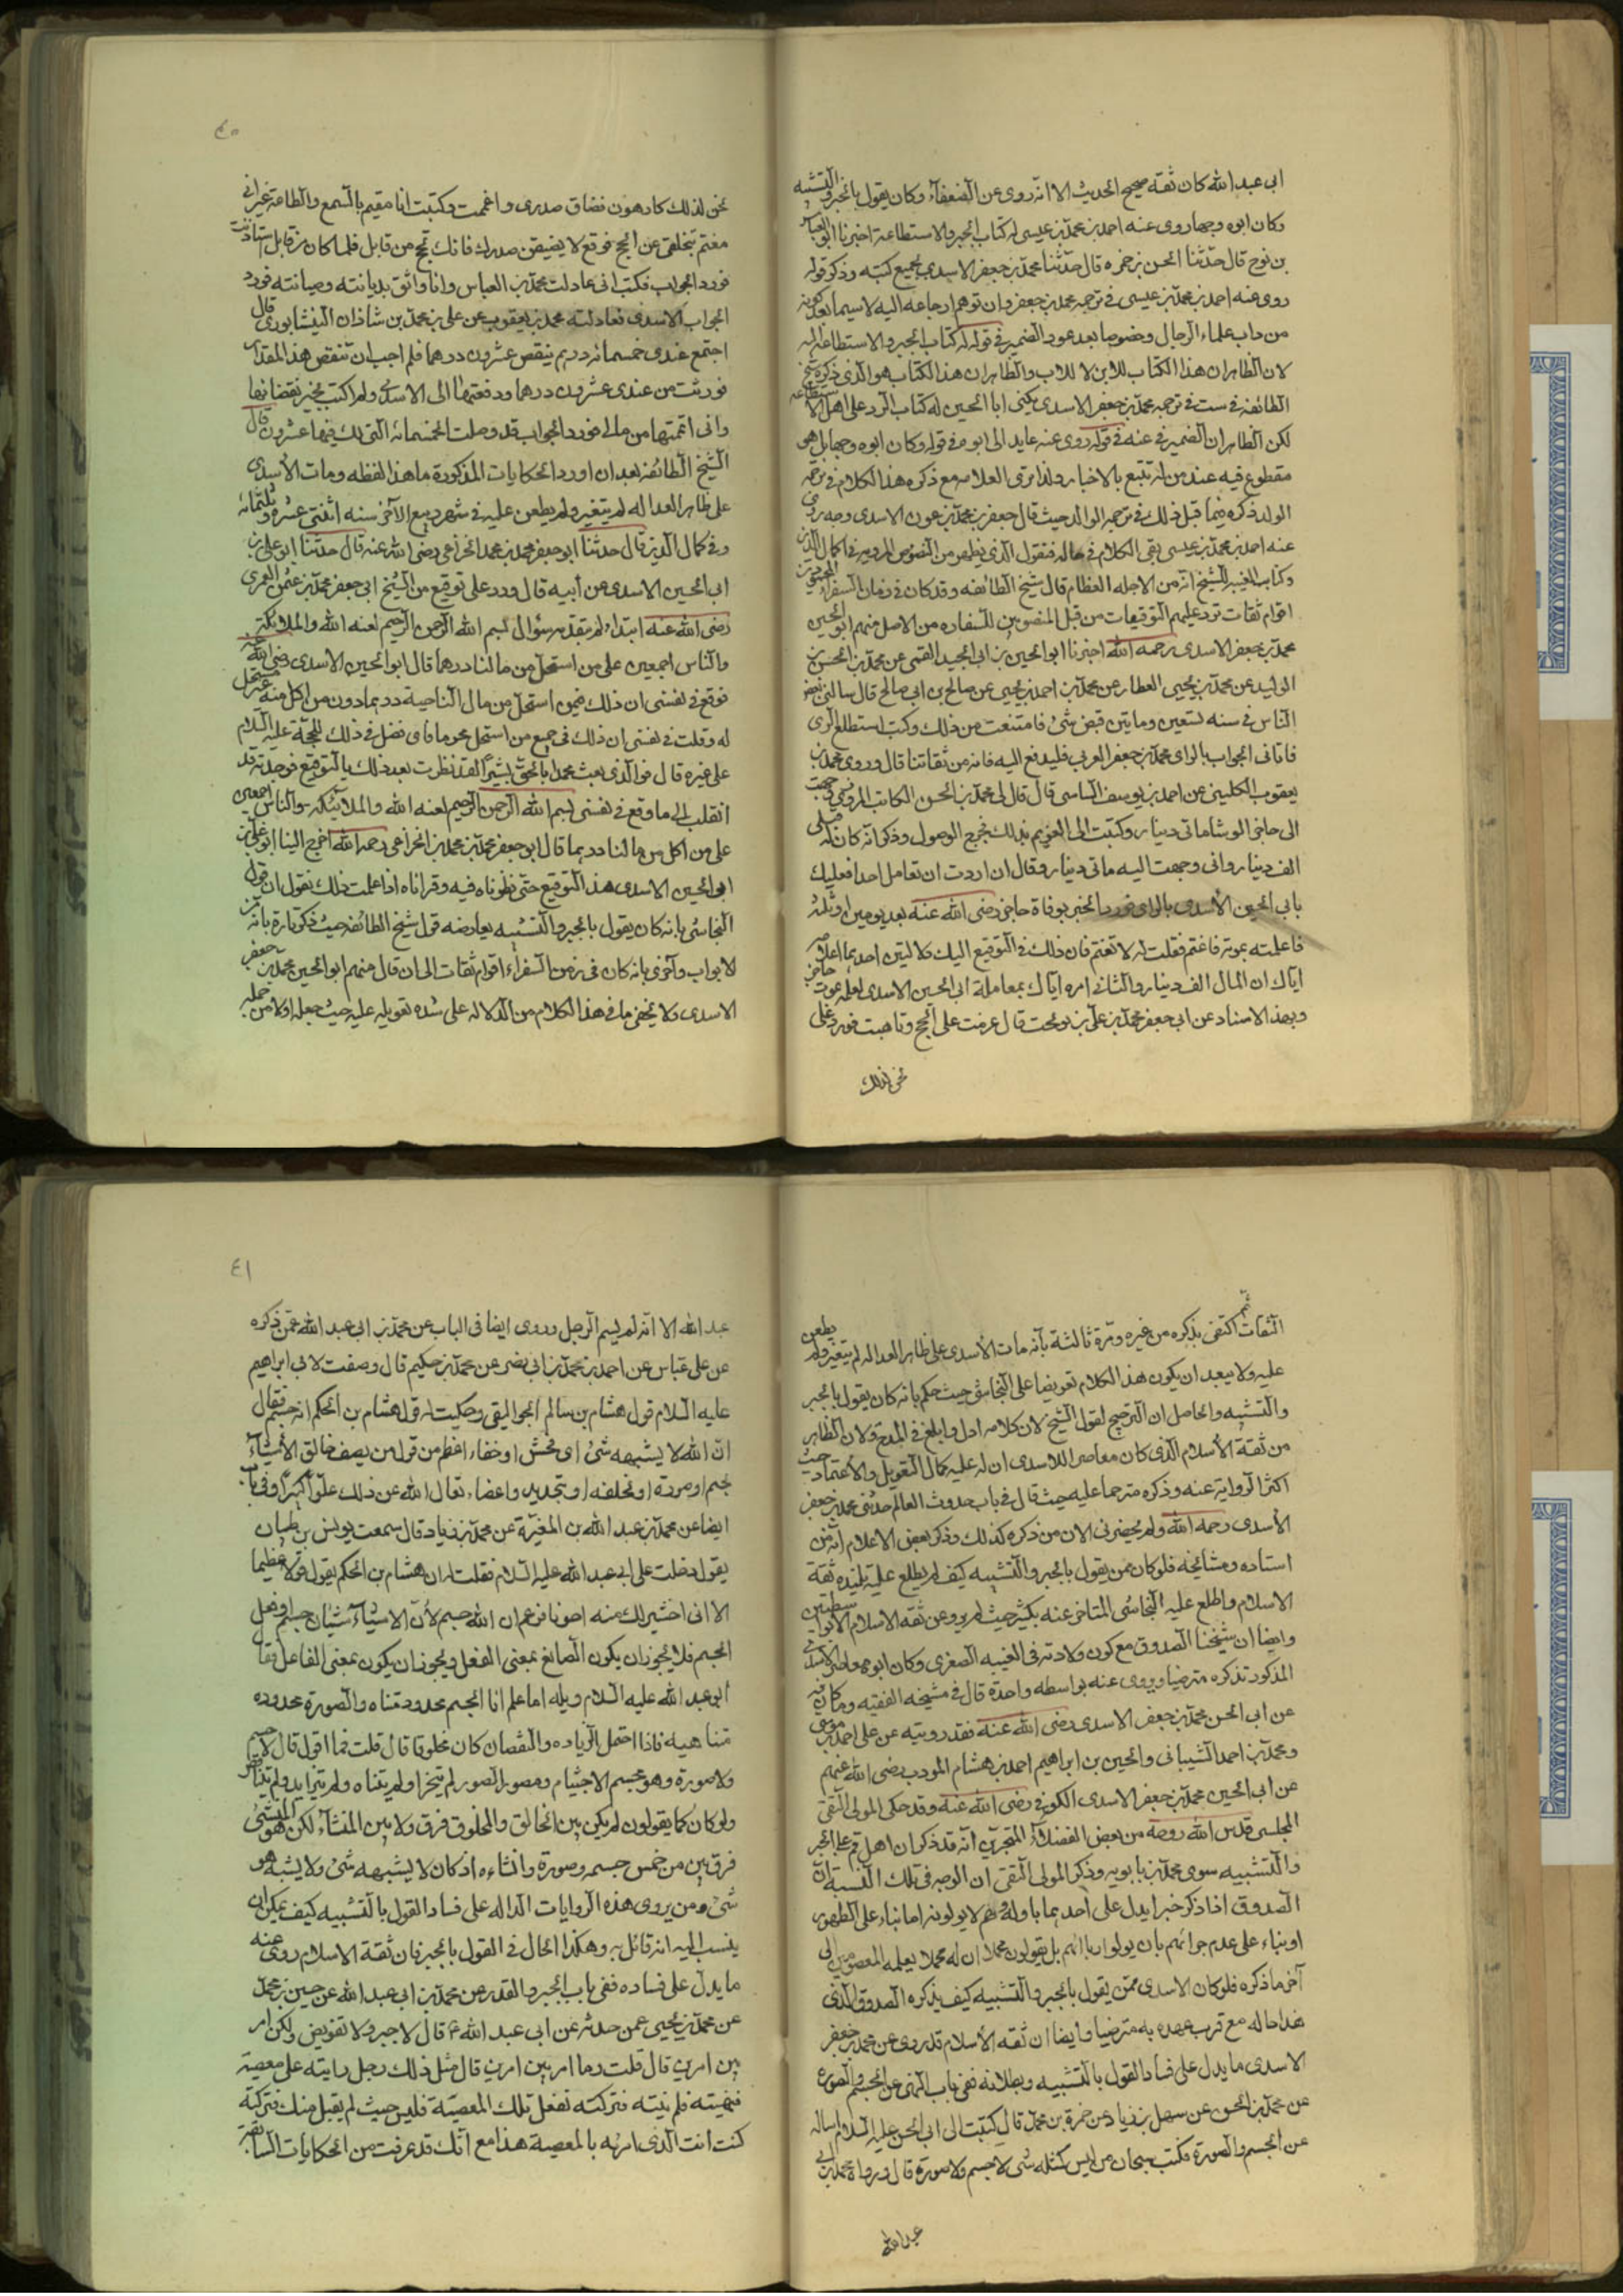 ابى عبد الله كان ثقة صحيح الحديث الا انه روى عن الضعفاء وكان يقول بالجبر والتشبيه
وكان ابوه وجها روى عنه احمد بن محمد بن عيسى له كتاب الجبر والاستطاعة اخبرنا ابو العباس
بن نوح قال حدثنا الحسن بن حمزه قال حدثنا محمد بن جعفر الاسدى بجميع كتبه وذكر قوله
روى عنه احمد بن محمد بن عيسى فى ترجمه محمد بن جعفر وان توهم ارجاعه اليه لا سيما بعد كونه
من داب علماء الرجال وخصوصا بعد عود الضمير فى قوله له كتاب الجبر والاستطاعة له
لان الظاهر ان هذا الكتاب للابن لا للاب والظاهر ان هذا الكتاب هو الذى ذكره شيخ
الطائفه فى ست فى ترجمه محمد بن جعفر الاسدى يكنى ابا الحسين له كتاب الرد على اهل الاستطاعه
لكن الظاهر ان الضمير فى عنه فى قوله روى عنه عايد الى ابوه فى قوله وكان ابوه وجها بل هو
مقطوع فيه عند من له تتبع بالاخبار ولذا ترى العلامه مع ذكره هذا الكلام فى ترجمه
الولد ذكره فيما قبل ذلك فى ترجمه الوالد حيث قال جعفر بن محمد بن عون الاسدى وجه روى
عنه احمد بن محمد بن عيسى بقى الكلام فى حاله فنقول الذى يظهر من النصوص المرويه فى اكمال الدين
وكتاب الغيبه للشيخ انه من الاجله العظام قال شيخ الطائفه وقد كان فى زمان السفراء المحمودين
اقوام ثقات ترد عليهم التوقيعات من قبل المنصوبين للسفاره من الاصل منهم ابو الحسين
محمد بن جعفر الاسدى رحمه الله اخبرنا ابو الحسين بن ابى الجيد القمى عن محمد بن الحسن بن
الوليد عن محمد بن يحيى العطار عن محمد بن احمد بن يحيى عن صالح بن ابى صالح قال سالنى بعض
الناس فى سنه تسعين وماتين قبض شئ فامتنعت من ذلك وكتبت استطلع الراى
فاتانى الجواب بالراى محمد بن جعفر العربى فليدفع اليه فانه من ثقاتنا قال وروى محمد بن
يعقوب الكلينى عن احمد بن يوسف الساسى قال قال لى محمد بن الحسن الكاتب المروزى وجهت
الى حاجز الوشا ماتى دينار وكتبت الى الغريم بذلك فخرج الوصول وذكر انه كان له قبلى
الف دينار وانى وجهت اليه ماتى دينار وقال ان اردت ان تعامل احدا فعليك
بابى الحسين الاسدى بالرى فورد الخبر بوفاة حاجز رضى الله عنه بعد يومين او ثلثه
فاعلمته بموته فاغتم فقلت له لا تغتم فان ذلك فى التوقيع اليك دلالتين احديهما اعلامه
اياك ان المال الف دينار والثانى امره اياك بمعاملة ابى الحسين الاسدى لعلمه بموت حاجز
وبهذا الاسناد عن ابى جعفر محمد بن على بن نوبخت قال عزمت على الحج وتاهبت فورد على
نحن لذلك
٤٠
نحن لذلك كارهون فضاق صدرى واغتممت وكتبت انا مقيم بالسمع والطاعة غير انى
مغتم بتخلفى عن الحج فوقع لا يضيقن صدرك فانك تحج من قابل فلما كان من قابل استاذنت
فورد الجواب فكتبت انى عادلت محمد بن العباس وانا واثق بديانته وصيانته فورد
الجواب الاسدى فعادلته محمد بن يعقوب عن على بن محمد بن شاذان النيشابورى قال
اجتمع عندى خمسمائه درهم ينقص عشرون درهما فلم احب ان تنقص هذا المقدار
فوزنت من عندى عشرون درهما ودفعتها الى الاسدى ولم اكتب بخبر نقصانها
وانى اتممتها من مالى فورد الجواب قد وصلت الخمسمائة التى لك فيها عشرون قال
الشيخ الطائفه بعد ان اورد الحكايات المذكورة ما هذا لفظه ومات الاسدى
على ظاهر العداله لم يتغير ولم يطعن عليه فى شهر ربيع الآخر سنه اثنتى عشره وثلثمائه
وفى كمال الدين قال حدثنا ابو جعفر محمد بن محمد الخزاعى رضى الله عنه قال حدثنا ابو على بن
ابى الحسين الاسدى عن أبيه قال ورد على توقيع من الشيخ ابى جعفر محمد بن عثمن العمرى
رضى الله عنه ابتداء لم يتقدمه سؤال بسم الله الرحمن الرحيم لعنه الله والملائكه
والناس اجمعين على من استحل من مالنا درهما قال ابو الحسين الاسدى رضى الله عنه
فوقع فى نفسى ان ذلك فيمن استحل من مال الناحية درهما دون من اكل منه غير مستحل
له وقلت فى نفسى ان ذلك فى جميع من استحل محرما فاى فضل فى ذلك للحجة عليه السلام
على غيره قال فوالذى بعث محمدا بالحق بشيرا لقد نظرت بعد ذلك بالتوقيع فوجدته قد
انقلب الى ما وقع فى نفسى بسم الله الرحمن الرحيم لعنه الله والملائكه والناس اجمعين
على من اكل من مالنا درهما قال ابو جعفر محمد بن محمد بن الخزاعى رحمه الله اخرج الينا ابو على بن
ابو الحسين الاسدى هذا التوقيع حتى نظرناه فيه وقراناه اذا علمت ذلك نقول ان قول
النجاشى بانه كان يقول بالجبر والتشبيه يعارضه قول شيخ الطائفه حيث ذكر تارة بانه من
الابواب وآخرى بانه كان فى زمن السفراء اقوام ثقات الى ان قال منهم ابو الحسين محمد بن جعفر
الاسدى ولا يخفى ما فى هذا الكلام من الدلاله على شده تعويله عليه حيث جعله اولا من جمله
الثقات ثم اكتفى بذكره من غيره ومرة ثالثة بأنه مات الأسدى على ظاهر العداله لم يتغير ولم يطعن
عليه ولا يبعد ان يكون هذا الكلام تعريضا على النجاشى حيث حكم بانه كان يقول بالجبر
والتشبيه والحاصل ان الترجيح لقول الشيخ لان كلامه ادل وابلغ فى المدح ولان الظاهر
من ثقة الأسلام الذى كان معاصرا للاسدى ان له عليه كمال التعويل والاعتماد حيث
اكثر الرواية عنه وذكره مترحما عليه حيث قال فى باب حدوث العالم حدثنى محمد بن جعفر
الأسدى رحمه الله ولم يحضرنى الان من ذكره كذلك وذكر بعض الاعلام انه من
استاده ومشائخه فلو كان ممن يقول بالجبر والتشبيه كيف لم يطلع عليه تلميذه ثقة
الاسلام واطلع عليه النجاشى المتاخر عنه بكثير حيث لم يرو عن ثقه الاسلام الا بواسطتين
وايضا ان شيخنا الصدوق مع كون ولادته فى الغيبه الصغرى وكان ابوه معاصر الاسدى
المذكور تذكره مترضيا ويروى عنه بواسطه واحدة قال فى مشيخه الفقيه وما كان فيه
عن ابى الحسن محمد بن جعفر الاسدى رضى الله عنه فقد رويته عن على احمد بن موسى
ومحمد بن احمد الشيبانى والحسين بن ابراهيم احمد بن هشام المودب رضى الله عنهم
عن ابى الحسين محمد بن جعفر الاسدى الكوفى رضى الله عنه وقد حكى المولى التقى
المجلسى قدس الله روحه من بعض الفضلاء المتبحرين انه قد ذكر ان اهل قم على الجبر
والتشبيه سوى محمد بن بابويه وذكر المولى التقى ان الوجه فى تلك النسبة ان
الصدوق اذا ذكر خبرا يدل على احدهما باوله وهم لا يولونه اما بناء على الظهور
او بناء على عدم جراتهم بان يولوا برائهم بل يقولون مجملا ان له محملا يعلمه المعصومين الى
آخر ما ذكره فلو كان الاسدى ممن يقول بالجبر والتشبيه كيف يذكره الصدوق الذى
هذا حاله مع قرب عهده به مترضيا وايضا ان ثقه الأسلام قد روى عن محمد بن جعفر
الاسدى ما يدل على فساد القول بالتشبيه وبطلانه ففى باب النهى عن الجسم والصورة
عن محمد بن الحسن عن سهل بن زياد عن حمزة بن محمد قال كتبت الى ابى الحسن عليه السلام اساله
عن الجسم والصورة فكتب سبحان من ليس كمثله شئ لا جسم ولا صورة قال ورواه محمد بن ابى
عبد الله
٤١
عبد الله الا انه لم يسم الرجل وروى ايضا فى الباب عن محمد بن ابى عبد الله عمن ذكره
عن على عباس عن احمد بن محمد بن ابى نصر عن محمد بن حكيم قال وصفت لابى ابراهيم
عليه السلام قول هشام بن سالم الجواليقى وحكيت له قول هشام بن الحكم انه جسم فقال
ان الله لا يشبهه شئ اى فحش او خفاء اعظم من قول من يصف خالق الأشياء
بجسم او صورة او بخلقه او بتحديد واعضاء تعالى الله عن ذلك علوا كبيرا وفى باب
ايضا عن محمد بن عبد الله بن المغيرة عن محمد بن زياد قال سمعت يونس بن ظبيان
يقول دخلت على ابى عبد الله عليه السلام فقلت له ان هشام بن الحكم يقول قولا عظيما
الا انى اختصر لك منه احرفا فزعم ان الله جسم لأن الاشياء شيئان جسم وفعل
الجسم فلا يجوز ان يكون الصانع بمعنى الفعل ويجوز ان يكون بمعنى الفاعل فقال
ابى عبد الله عليه السلام ويله اما علم انا الجسم محدود متناه والصورة محدوده
متناهيه فاذا احتمل الزياده والنقصان كان مخلوقا قال قلت فما اقول قال لا جسم
ولا صورة وهو مجسم الاجسام ومصور الصور لم يتجزا ولم يتناه ولم يتزايد ولم يتناقص
ولو كان كما يقولون لم يكن بين الخالق والمخلوق فرق ولا بين المنشاء لكن هو المنشئ
فرق بين من جسم وصورة وانشاءه اذ كان لا يشبهه شئ ولا يشبه هو
شئ ومن يروى هذه الروايات الداله على فساد القول بالتشبيه كيف يمكن ان
ينسب اليه انه قائل به وهكذا الحال فى القول بالجبر فان ثقة الاسلام روى عنه
ما يدل على فساده ففى باب الجبر والقدر عن محمد بن ابى عبد الله عن حسين بن محمد
عن محمد بن يحيى عمن حدثه عن ابى عبد الله ع قال لا جبر ولا تفويض ولكن امر
بين امرين قال قلت وما امر بين امرين قال مثل ذلك رجل رايته على معصية
فنهيته فلم ينته فتركته ففعل تلك المعصية فليس حيث لم يقبل منك فتركته
كنت انت الذى امرته بالمعصية هذا مع انك قد عرفت من الحكايات السابقة